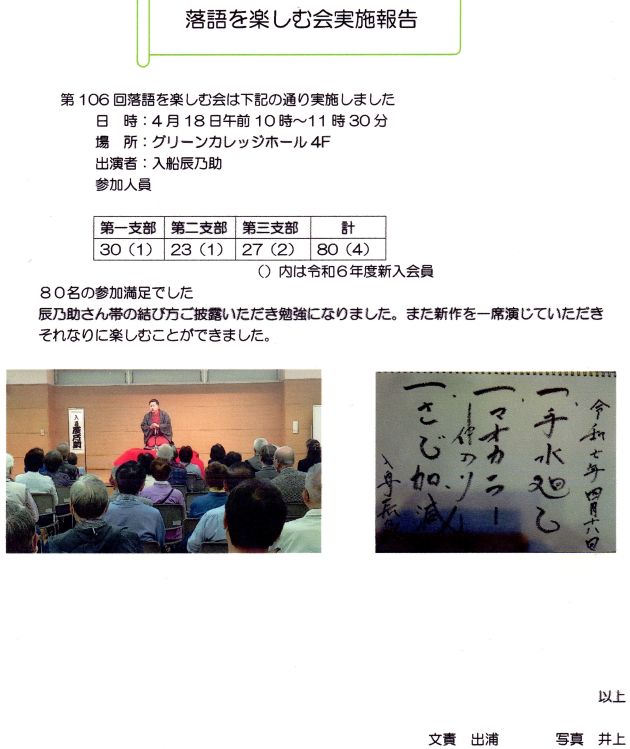 落語を楽しむ会実施報告
第106回落語を楽しむ会は下記の通り実施しました
日　時：4月18日午前10時～11時30分
場　所：グリーンカレッジホール4F
出演者：入船辰乃助
参加人員
第一支部 第二支部 第三支部 計
30（1） 23（1） 27（2） 80（4）
（）内は令和６年度新入会員
８０名の参加満足でした
辰乃助さん帯の結び方ご披露いただき勉強になりました。また新作を一席演じていただき
それなりに楽しむことができました。
令和七年四月十八日
一、手水廻し
一、マオカラー
一、さじ加減
以上
文責　出浦　　　写真　井上